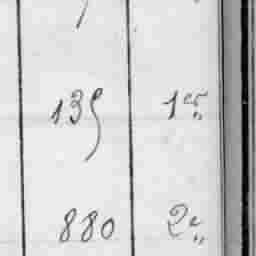 135 1er „
880 2e „